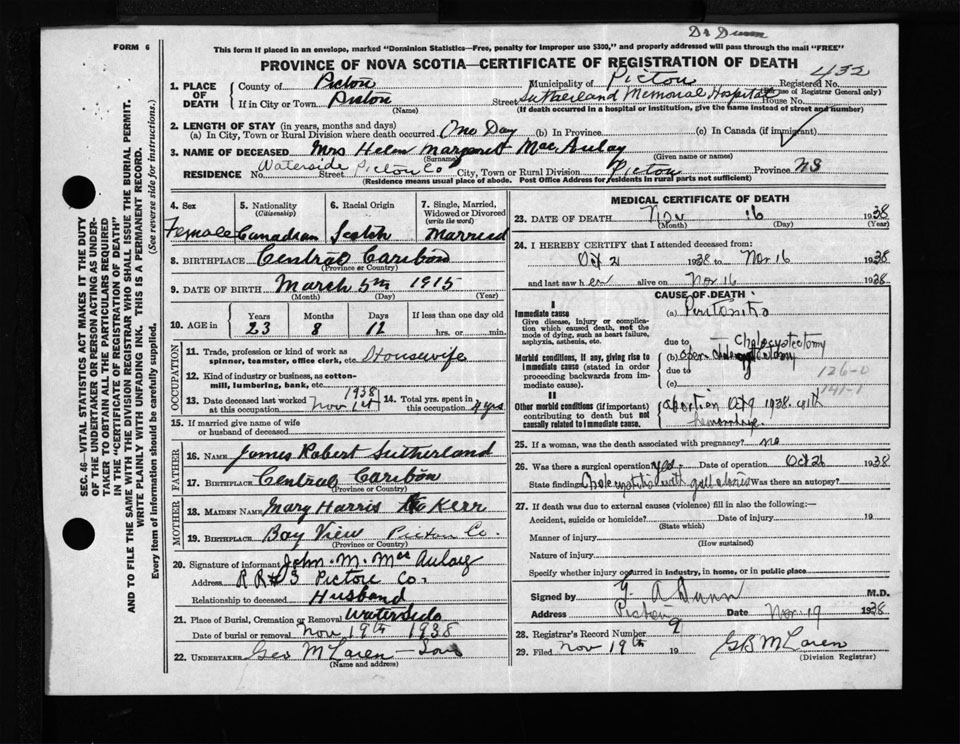 Dr Dunn
FORM 6
This form if placed in an envelope, marked "Dominion Statistics—Free, penalty for improper use $300," and properly addressed will pass through the mail "FREE"
PROVINCE OF NOVA SCOTIA—CERTIFICATE OF REGISTRATION OF DEATH
432
1. PLACE OF DEATH
County of Pictou Municipality of Pictou Registered No.
(For use of Registrar General only)
If in City or Town Pictou Street Sutherland Memorial Hospital House No.
(Name) (If death occurred in a hospital or institution, give the name instead of street and number)
2. LENGTH OF STAY (in years, months and days)
(a) In City, Town or Rural Division where death occurred One Day (b) In Province (c) In Canada (if immigrant)
3. NAME OF DECEASED Mrs Helen Margaret MacAulay
(Surname) (Given name or names)
RESIDENCE No. Waterside Street Pictou Co City, Town or Rural Division Pictou Province NS
(Residence means usual place of abode. Post Office Address for residents in rural parts not sufficient)
SEC. 46—VITAL STATISTICS ACT MAKES IT THE DUTY
OF THE UNDERTAKER OR PERSON ACTING AS UNDER-
TAKER TO OBTAIN ALL THE PARTICULARS REQUIRED
IN THE "CERTIFICATE OF REGISTRATION OF DEATH"
AND TO FILE THE SAME WITH THE DIVISION REGISTRAR WHO SHALL ISSUE THE BURIAL PERMIT.
WRITE PLAINLY WITH UNFADING INK. THIS IS A PERMANENT RECORD.
Every item of information should be carefully supplied. (See reverse side for instructions.)
4. Sex
Female
5. Nationality
(Citizenship)
Canadian
6. Racial Origin
Scotch
7. Single, Married,
Widowed or Divorced
(write the word)
Married
8. BIRTHPLACE Central Caribou
(Province or Country)
9. DATE OF BIRTH March 5th 1915
(Month) (Day) (Year)
10. AGE in
Years Months Days If less than one day old
23 8 11 hrs. or min.
OCCUPATION
11. Trade, profession or kind of work as
spinner, teamster, office clerk, etc. Housewife
12. Kind of industry or business, as cotton-
mill, lumbering, bank, etc.
13. Date deceased last worked 1938
at this occupation Nov 1st
14. Total yrs. spent in
this occupation 4 yrs
15. If married give name of wife
or husband of deceased
FATHER
16. Name James Robert Sutherland
17. Birthplace Central Caribou
(Province or Country)
MOTHER
18. MAIDEN NAME Mary Harris Kerr
19. Birthplace Bay View Pictou Co.
(Province or Country)
20. Signature of informant John. M. MacAulay
Address R R #3 Pictou Co.
Relationship to deceased Husband
21. Place of Burial, Cremation or Removal Waterside
Date of burial or removal Nov 19th 1938
22. UNDERTAKER Geo McLaren — Son
(Name and address)
MEDICAL CERTIFICATE OF DEATH
23. DATE OF DEATH Nov 16 1938
(Month) (Day) (Year)
24. I HEREBY CERTIFY that I attended deceased from:
Oct 21 1938 to Nov 16 1938
and last saw her alive on Nov 16 1938
CAUSE OF DEATH
I
Immediate cause
Give disease, injury or compli-
cation which caused death, not the
mode of dying, such as heart failure,
asphyxia, asthenia, etc.
(a) Peritonitis
due to Cholecystectomy
Morbid conditions, if any, giving rise to
immediate cause (stated in order
proceeding backwards from
immediate cause).
(b)
due to 126-0
(c) 141-1
II
Other morbid conditions (if important)
contributing to death but not
causally related to immediate cause.
abortion Oct 9 1938 with
hemorrhage
25. If a woman, was the death associated with pregnancy? no
26. Was there a surgical operation yes Date of operation Oct 26 1938
State findings Cholecystitis with gall stones Was there an autopsy?
27. If death was due to external causes (violence) fill in also the following:
Accident, suicide or homicide? Date of injury 19
(State which)
Manner of injury
(How sustained)
Nature of injury
Specify whether injury occurred in industry, in home, or in public place
Signed by G A Dunn M.D.
Address Pictou Date Nov. 19 1938
28. Registrar's Record Number 9
29. Filed Nov 19th 19 GB McLaren
(Division Registrar)